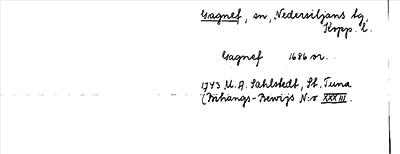 Gagnef, sn, Nedersiljans tg,
Kopp. l.
Gagnef 1686 m.
1743 M. A. Sahlstedt, St. Tuna
(Bihangs-Bewijs N:o XXXIII.